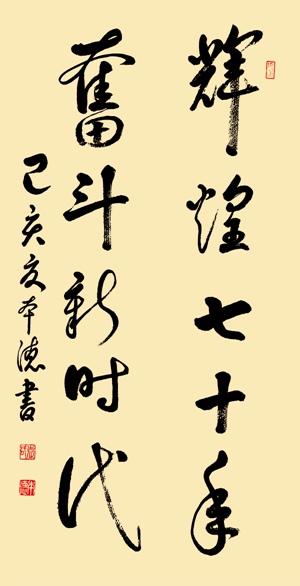 辉煌七十年
奋斗新时代
己亥夏本德書